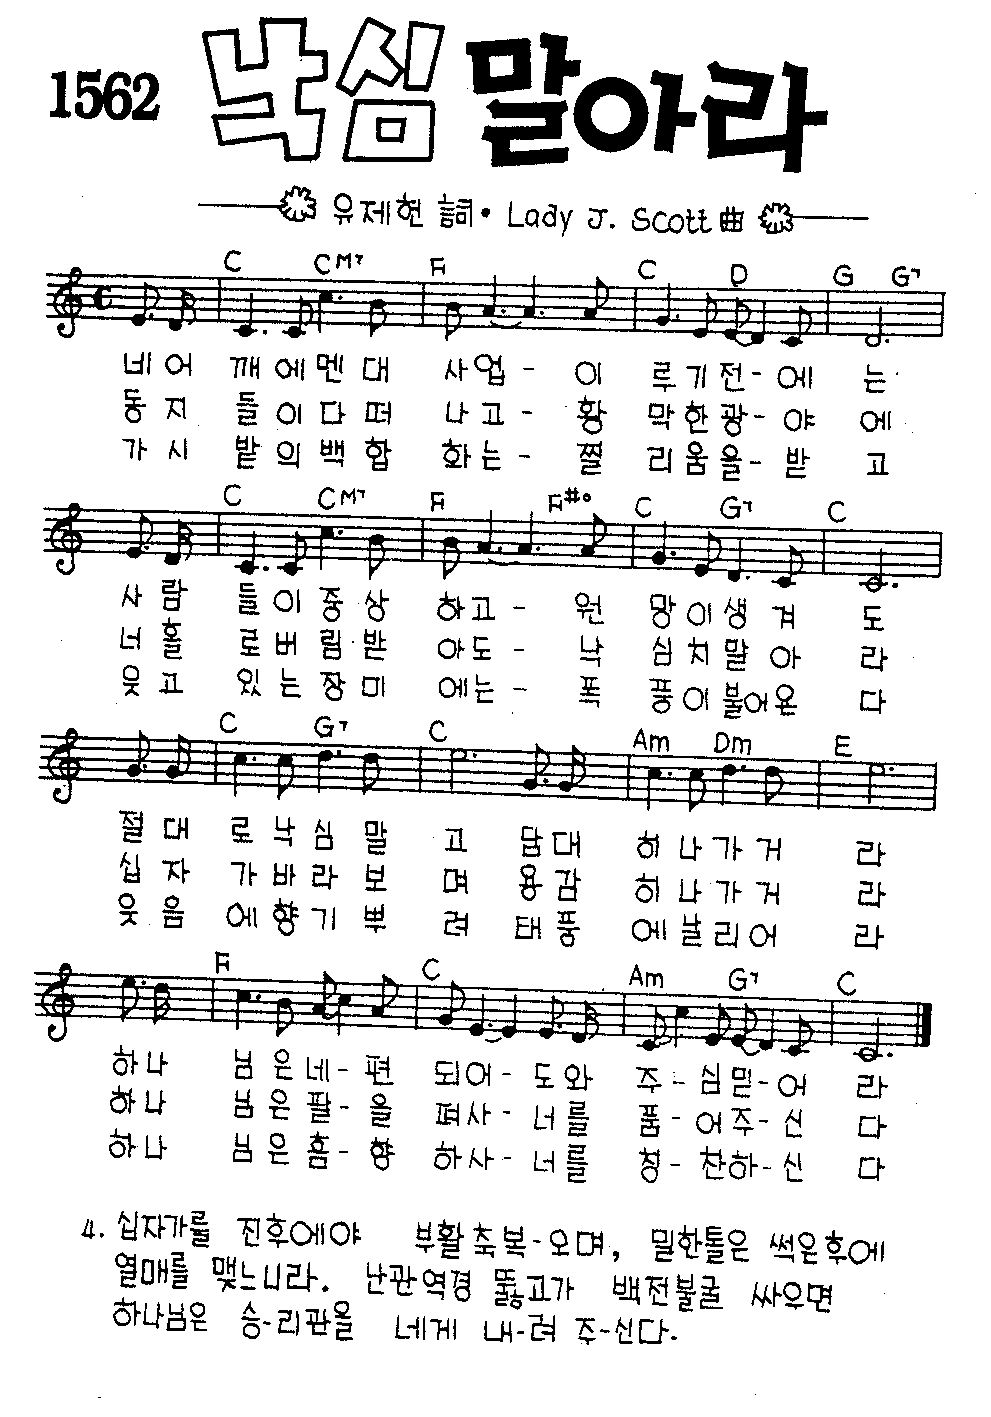 1562 낙심 말아라
유제현 詞· Lady J. Scott 曲
C CM7 F C D G G7
네어 깨에멘대 사업- 이 루기전-에 는
동지 들이다떠 나고- 황 막한광-야 에
가시 밭의백합 화는- 찔 리움을-받 고
C CM7 F F#° C G7 C
사람 들이중상 하고- 원 망이생겨 도
너홀 로버림받 아도- 낙 심치말아 라
웃고 있는장미 에는- 폭 풍이불어온 다
C G7 C Am Dm E
절대 로낙심말 고 담대 히나가거 라
십자 가바라보 며 용감 히나가거 라
웃음 에향기뿌 려 태풍 에날리어 라
F C Am G7 C
하나 님은네-편 되어-도와 주-심믿-어 라
하나 님은팔-을 펴사-너를 품-어주-신 다
하나 님은흠-향 하사-너를 칭-찬하-신 다
4. 십자가를 진후에야 부활축복-오며, 밀한톨은 썩은후에
열매를 맺느니라. 난관역경 뚫고가 백전불굴 싸우면
하나님은 승-리관을 네게 내-려 주-신다.